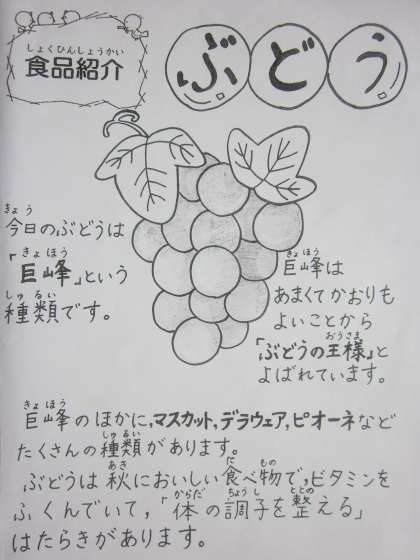 しょくひんしょうかい
食品紹介
ぶどう
きょう
今日のぶどうは
きょほう
「巨峰」という
しゅるい
種類です。
きょほう
巨峰は
あまくてかおりも
よいことから
おうさま
「ぶどうの王様」と
よばれています。
きょほう
巨峰のほかに,マスカット,デラウェア,ピオーネなど
しゅるい
たくさんの種類があります。
あき た もの
ぶどうは秋においしい食べ物で,ビタミンを
からだ ちょうし ととの
ふくんでいて,「体の調子を整える」
はたらきがあります。